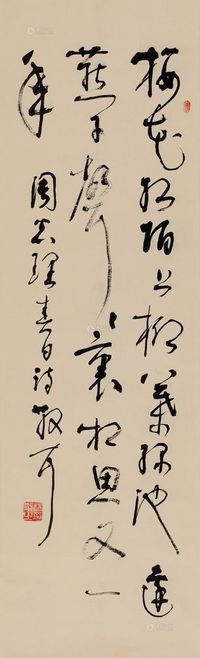 樱花红陌上柳叶绿池边
燕子声声里相思又一
年 周总理春日诗